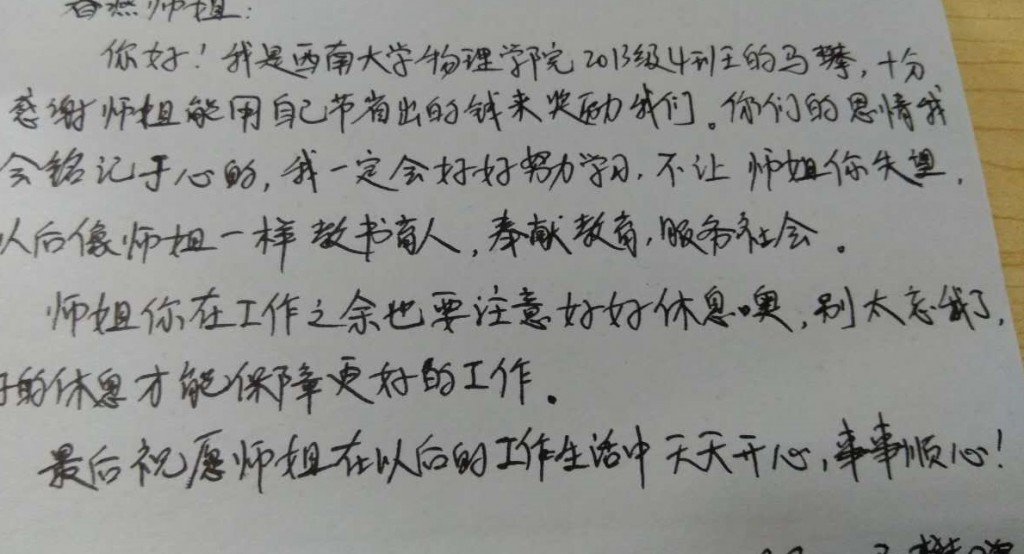 春燕师姐：
你好！我是西南大学物理学院2013级4班的马攀，十分
感谢师姐能用自己节省出的钱来奖励我们。你们的恩情我
会铭记于心的，我一定会好好努力学习，不让师姐你失望，
以后像师姐一样教书育人，奉献教育，服务社会。
师姐你在工作之余也要注意好好休息噢，别太忘我了，
好的休息才能保障更好的工作。
最后祝愿师姐在以后的工作生活中天天开心，事事顺心！